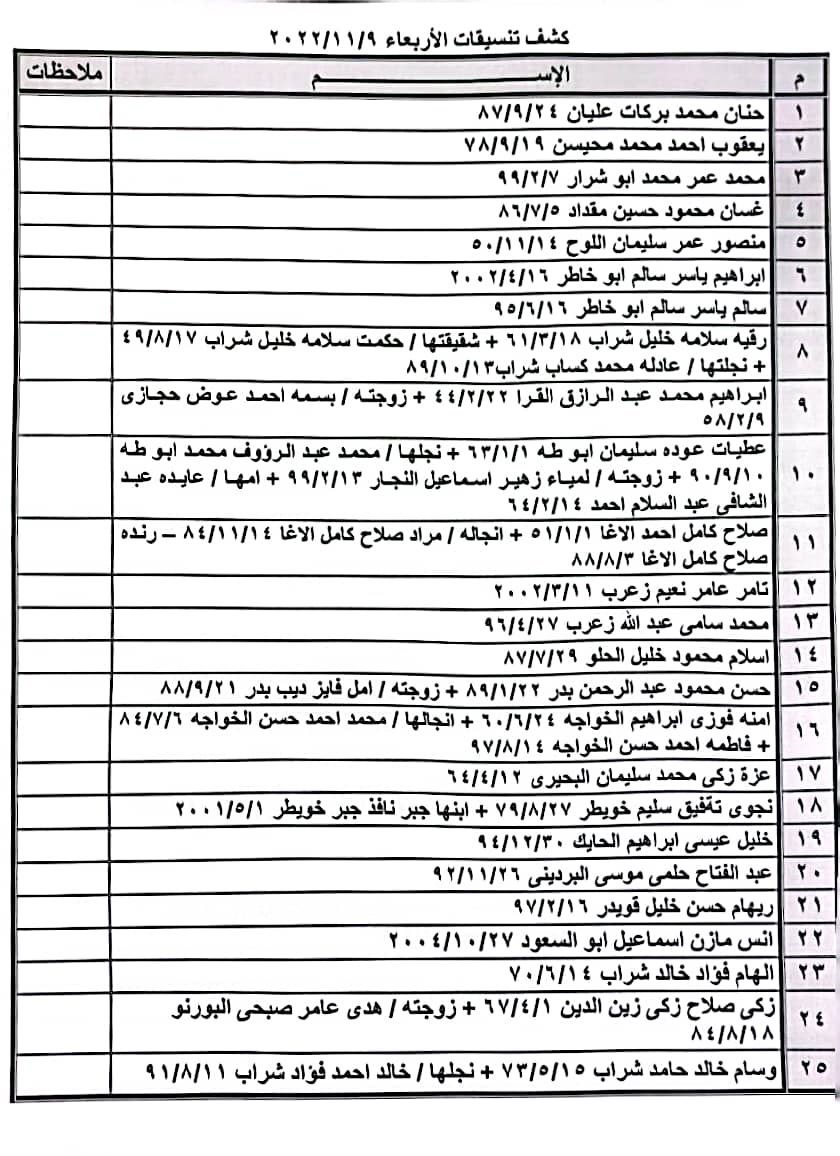 كشف تنسيقات الأربعاء ٢٠٢٢/١١/٩
م الإســـــــــم ملاحظات
١ حنان محمد بركات عليان ٨٧/٩/٢٤
٢ يعقوب احمد محمد محيسن ٧٨/٩/١٩
٣ محمد عمر محمد ابو شرار ٩٩/٢/٧
٤ غسان محمود حسين مقداد ٨٦/٧/٥
٥ منصور عمر سليمان اللوح ٥٠/١١/١٤
٦ ابراهيم ياسر سالم ابو خاطر ٢٠٠٢/٤/١٦
٧ سالم ياسر سالم ابو خاطر ٩٥/٦/١٦
٨ رقيه سلامه خليل شراب ٦١/٣/١٨ + شقيقتها / حكمت سلامه خليل شراب ٤٩/٨/١٧
+ نجلتها / عادله محمد كساب شراب٨٩/١٠/١٣
٩ ابراهيم محمد عبد الرازق القرا ٤٤/٢/٢٢ + زوجته / بسمه احمد عوض حجازى
٥٨/٢/٩
١٠ عطيات عوده سليمان ابو طه ٦٣/١/١ + نجلها / محمد عبد الرؤوف محمد ابو طه
٩٠/٩/١٠ + زوجته / لمياء زهير اسماعيل النجار ٩٩/٢/١٣ + امها / عايده عبد
الشافى عبد السلام احمد ٦٤/٢/١٤
١١ صلاح كامل احمد الاغا ٥١/١/١ + انجاله / مراد صلاح كامل الاغا ٨٤/١١/١٤ – رنده
صلاح كامل الاغا ٨٨/٨/٣
١٢ تامر عامر نعيم زعرب ٢٠٠٢/٣/١١
١٣ محمد سامى عبد الله زعرب ٩٦/٤/٢٧
١٤ اسلام محمود خليل الحلو ٨٧/٧/٢٩
١٥ حسن محمود عبد الرحمن بدر ٨٩/١/٢٢ + زوجته / امل فايز ديب بدر ٨٨/٩/٢١
١٦ امنه فوزى ابراهيم الخواجه ٦٠/٦/٢٤ + انجالها / محمد احمد حسن الخواجه ٨٤/٧/٦
+ فاطمه احمد حسن الخواجه ٩٧/٨/١٤
١٧ عزة زكى محمد سليمان البحيرى ٦٤/٤/١٢
١٨ نجوى تةفيق سليم خويطر ٧٩/٨/٢٧ + ابنها جبر نافذ جبر خويطر ٢٠٠١/٥/١
١٩ خليل عيسى ابراهيم الحايك ٩٤/١٢/٣٠
٢٠ عبد الفتاح حلمى موسى البردينى ٩٢/١١/٢٦
٢١ ريهام حسن خليل قويدر ٩٧/٢/١٦
٢٢ انس مازن اسماعيل ابو السعود ٢٠٠٤/١٠/٢٧
٢٣ الهام فؤاد خالد شراب ٧٠/٦/١٤
٢٤ زكى صلاح زكى زين الدين ٦٧/٤/١ + زوجته / هدى عامر صبحى البورنو
٨٤/٨/١٨
٢٥ وسام خالد حامد شراب ٧٣/٥/١٥ + نجلها / خالد احمد فؤاد شراب ٩١/٨/١١